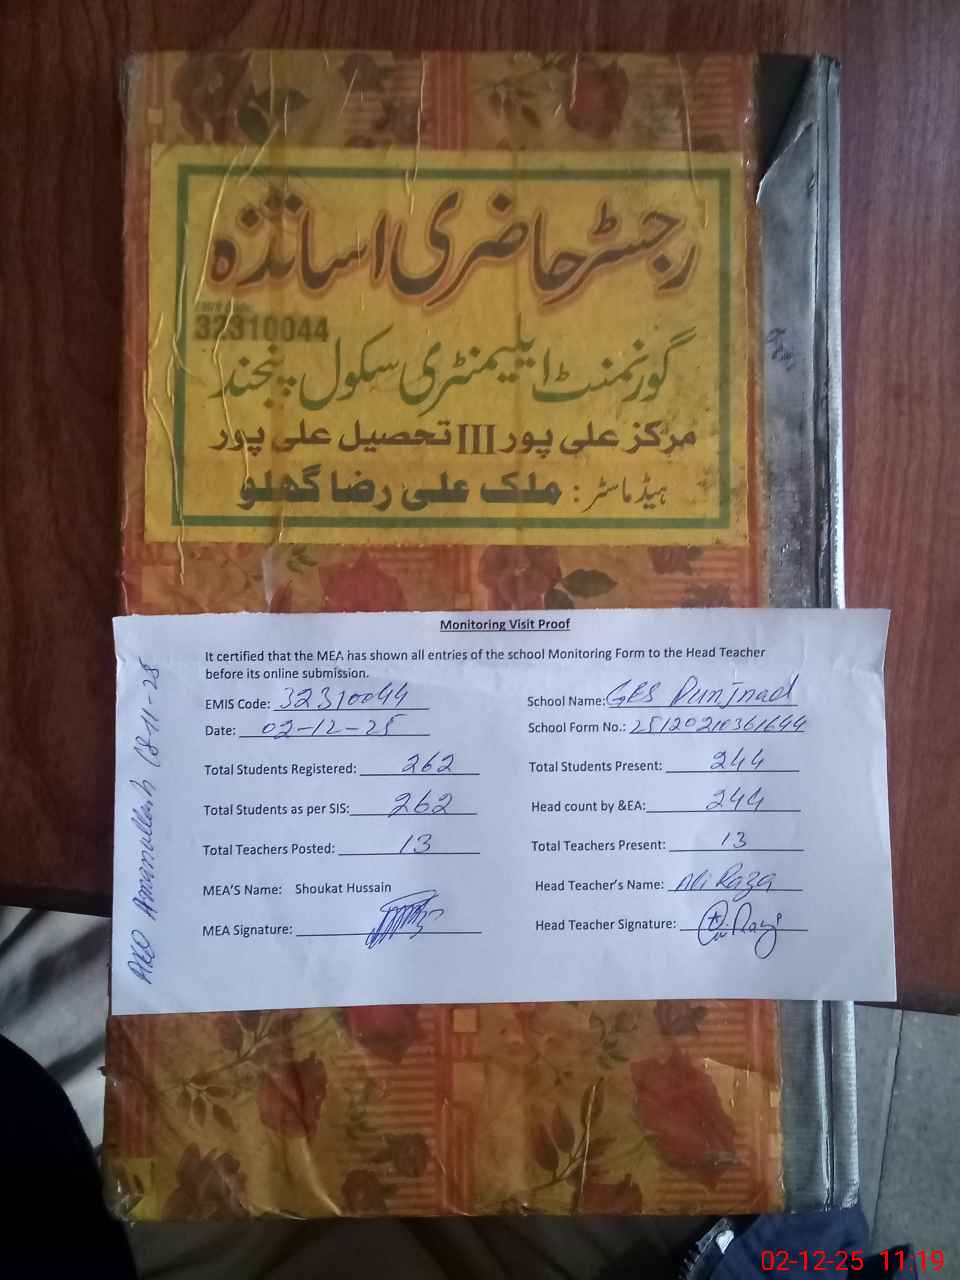 رجسٹر حاضری اساتذہ
32310044
گورنمنٹ ایلیمنٹری سکول پنجند
مرکز علی پور III تحصیل علی پور
ہیڈ ماسٹر : ملک علی رضا گھلو
Monitoring Visit Proof
It certified that the MEA has shown all entries of the school Monitoring Form to the Head Teacher
before its online submission.
EMIS Code: 32310044 School Name: GES Punjnad
Date: 02-12-25 School Form No.: 25120210361644
Total Students Registered: 262 Total Students Present: 244
Total Students as per SIS: 262 Head count by &EA: 244
Total Teachers Posted: 13 Total Teachers Present: 13
MEA'S Name: Shoukat Hussain Head Teacher's Name: Ali Raza
MEA Signature: Head Teacher Signature:
Amanullah 18-11-25
02-12-25 11:19